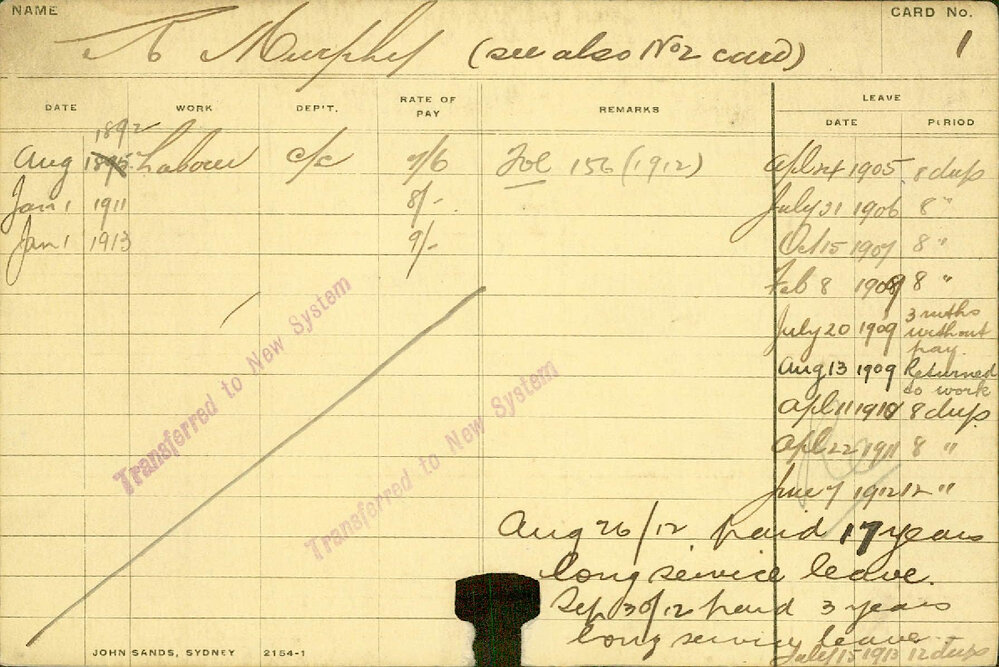 NAME
CARD No.
Murphy (see also No 2 card)
1
DATE WORK DEP'T. RATE OF PAY REMARKS LEAVE
DATE PERIOD
1892
Aug 1895 Labour c/c 7/6 Fol 156 (1912) Apl 24 1905 8 days
Jan 1 1911 8/- July 31 1906 8 "
Jan 1 1913 9/- Oct 15 1907 8 "
Feb 8 1909 8 "
July 20 1909 3 mths without pay.
Aug 13 1909 Returned to work
Apl 11 1910 8 days
Apl 22 1911 8 "
June 7 1912 12 "
Transferred to New System
Transferred to New System
Aug 26/12 paid 17 years
long service leave.
Sep 30/12 paid 3 years
long service leave
July 15 1913 12 days
JOHN SANDS, SYDNEY 2154-1